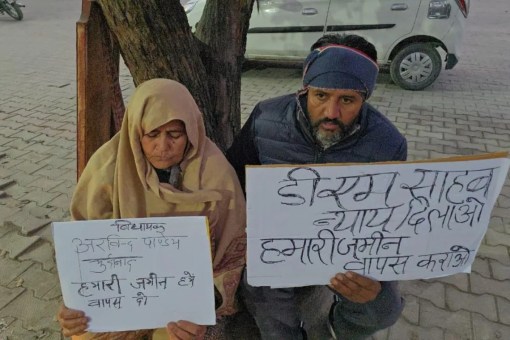 विधायक
अरविन्द पाण्डय
हमारी जमीन हमें
वापस दो
डीएम साहब
न्याय दिलाओ
हमारी जमीन
वापस कराओ